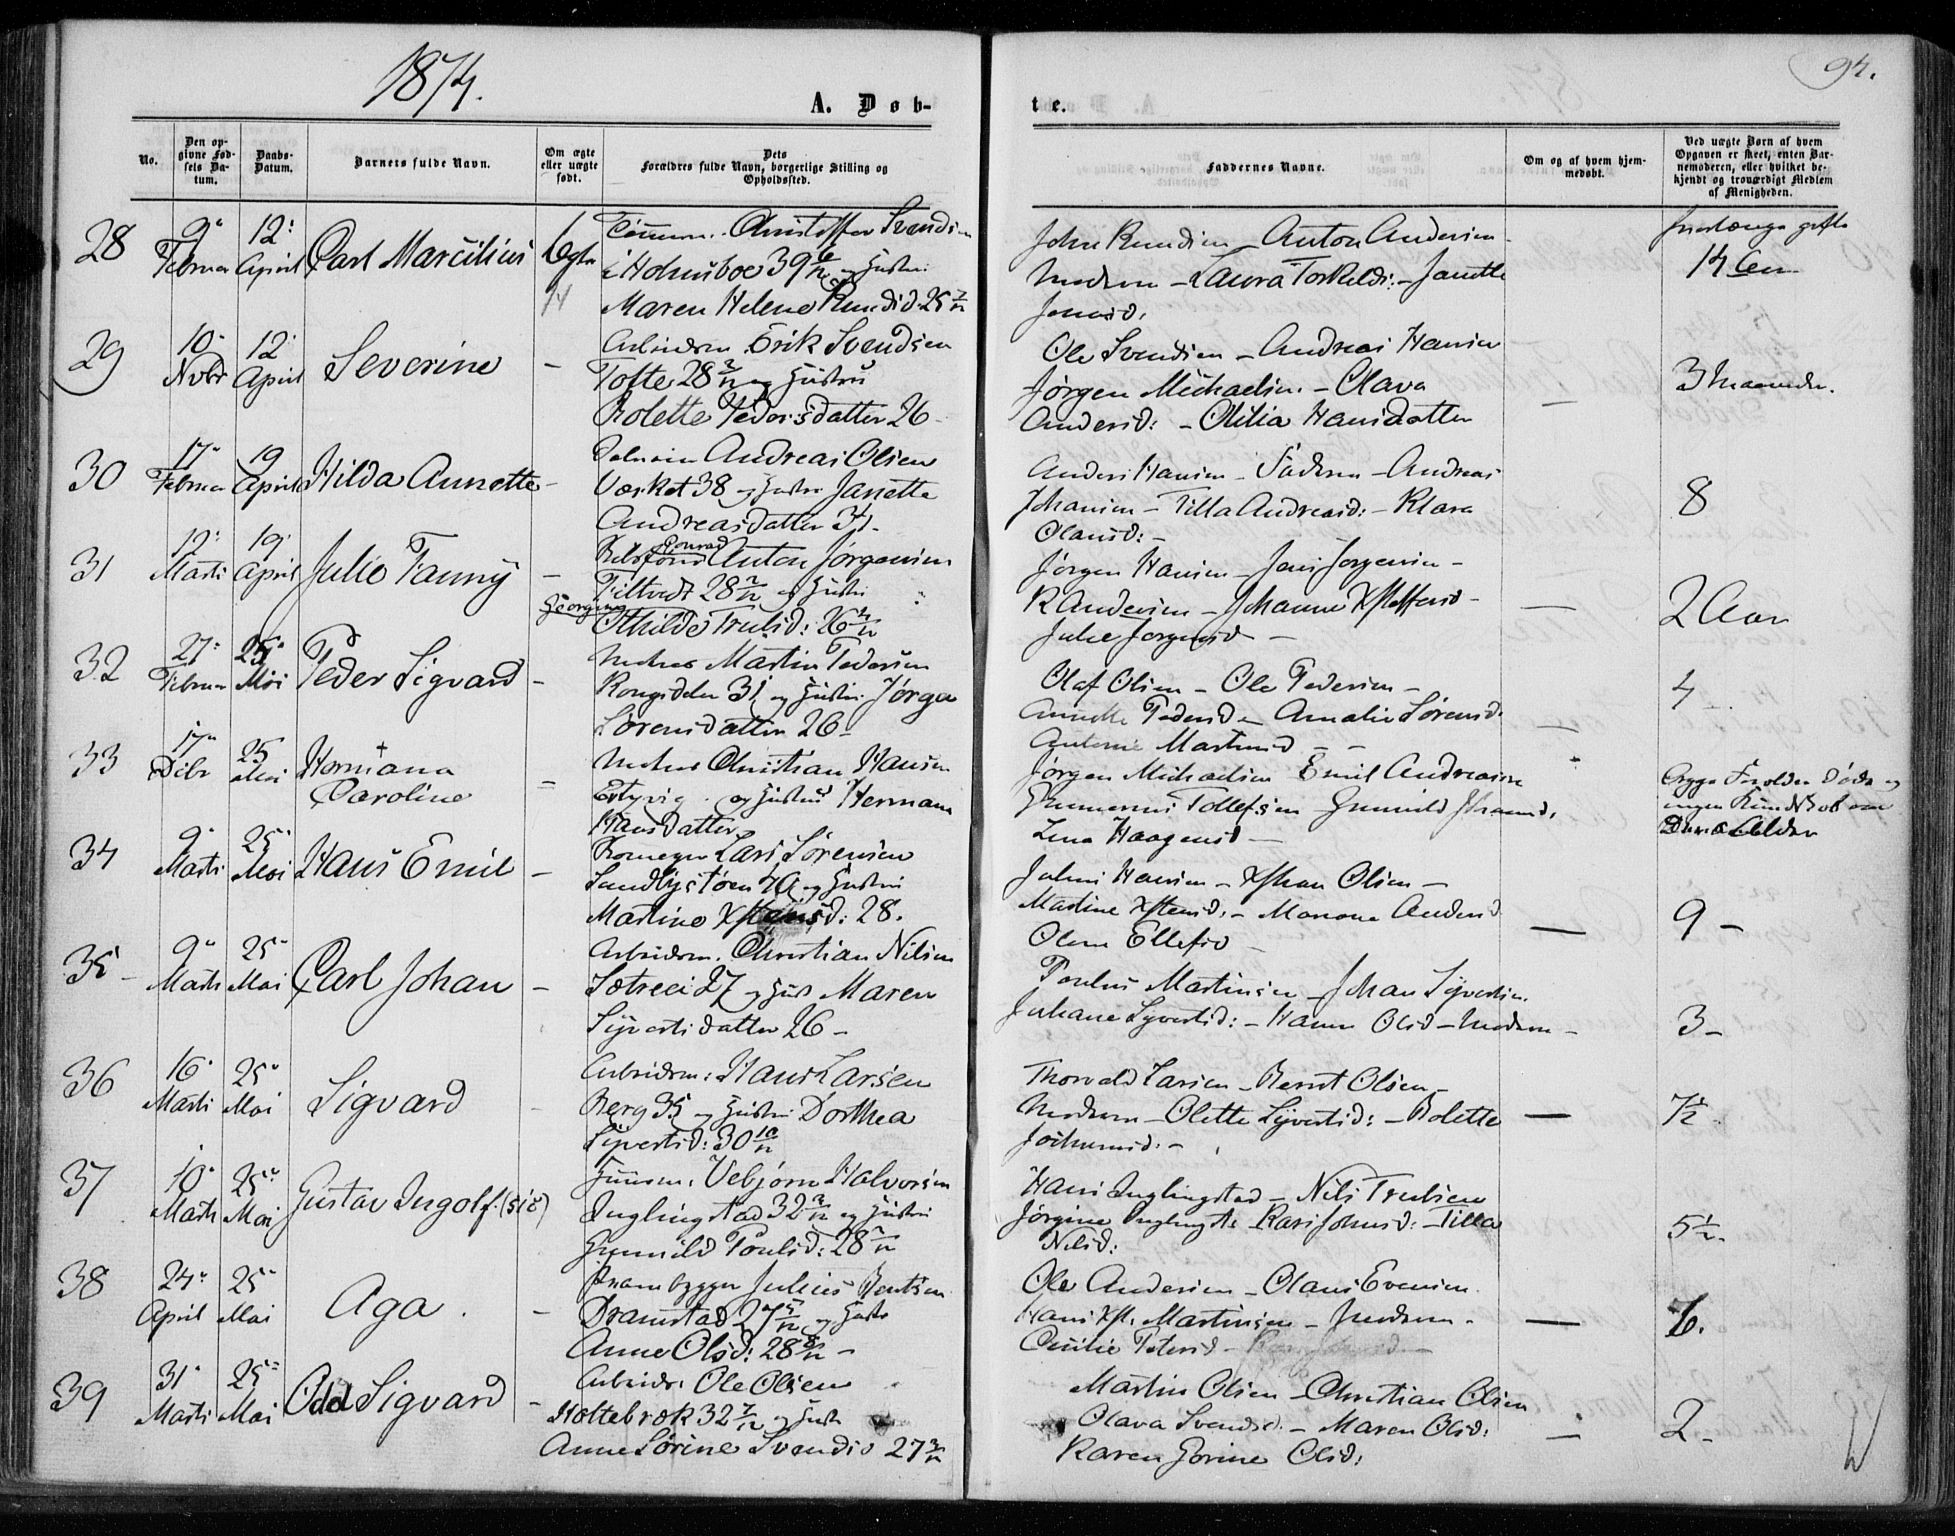 1874.
94.
A. Døb-
te.
No.
Den op-
givne Fød-
sels Da-
tum.
Daabs-
Datum.
Barnets fulde Navn.
Om ægte
eller uægte
født.
Dets
Forældres fulde Navn, borgerlige Stilling og
Opholdssted.
Faddernes Navne.
Om og af hvem hjem-
medøbt.
Ved uægte Børn af hvem
Opgaven er skeet, enten Bar-
nemoderen, eller hvilket be-
kjendt og troværdigt Medlem
af Menigheden.
28
9
Februar
12
April
Carl Marcilius
Ægte
Christoffer Svendsen
i Holmsboe 39 6/12 og Hustru
Maren Helene 25 7/12
Anton Andersen
Moderen - Laura Torkelds: - Janette
Jensd.
14 Aar
29
10
Novbr
12
April
Severine
-
Arbeidsm. Erik Svendsen
Tofte 28 2/12 og Hustru
Bolette Pedersdatter 26
Ole Svendsen - Andreas Hansen
Jørgen Michaelsen - Olava
Andersd: - Otilia Hansdatter
-
3 Maaneder.
30
17
Februar
19
April
Hilda Annette
-
Andreas Olsen
Værket 38 og Hustru Janette
Andreasdatter 34.
Anders Hansen - Faderen - Andreas
Johansen - Tilla Andreasd: - Klara
Olausd: -
8
31
12
Marts
19
April
Julie Fanny
-
Conrad
Anton Jørgensen
28 7/12 og Hustru
Georgine
Othilde Trulsd: 26 4/12
Jørgen Hansen - Jens Jørgensen -
R Andersen - Johanne Xstoffersd -
Julie Jørgensd -
-
2 Aar
32
27
Februar
25
Mai
Peder Sigvard
-
Martin Pedersen
Kongsdelen 31 og Hustru Jørgea
Sørensdatter 26 -
Olaf Olsen - Ole Pedersen -
Annette Pedersd - Amalie Sørensd.
Antonie Martinsd - -
-
4 -
33
17
Debr
25
Mai
Hermana
Caroline
-
Christian Hansen
og Hustru Hermana
Hansdatter
Jørgen Michaelsen Emil Andreasen
Tollefsen Gunnild
Lena Haagensd -
Begge Forældre Døde og
ingen Kundskab om
Deres Alder
34
9
Marts
25
Mai
Hans Emil
-
Lars Sørensen
40 og Hustru
Martine 28.
Julius Hansen - Xstian Olsen -
Martine Xstensd. - Mariane Andersd
Olena Ellefsd -
-
9 -
35 -
9
Marts
25
Mai
Carl Johan
-
Arbeidsm. Christian Nilsen
Sætrei 27 og Hust Maren
Syvertsdatter 26 -
Paulus Martinsen - Johan Syvertsen.
Juliane Syvertsd: - Hanna Olsd - Moderen -
3 -
36
16
Marts
25
Mai
Sigvard
-
Arbeidsm: Hans Larsen
Berg 35 og Hustru Dorthea
Syvertsd: 30 10/12
Thorvald Larsen - Bernt Olsen -
Moderen - Olette Syvertsd: - Bolette
Jochumsd. -
-
7½
37
10
Marts
25
Mai
Gustav Ingolf. (sic)
Huusm. Vebjørn Halvorsen
Inglingstad 32 3/12 og Hustru
Gunnild Poulsd: 28 7/12
Hans Inglingstad - Nils Trulsen
Jørgine Inglingst: - Kari Johnsd: - Tilla
Nilsd:
5½
38
24
April
25
Mai
Aga.
-
Prambygger Julius Berntsen
Dramstad 27 5/12 og Hustru
Anne Olsd: 28 8/12 -
Ole Andersen - Olaus Evensen
Hans Xst. Martinsen - Moderen -
Cecilie Petersd -
-
7.
39
31
Marts
25
Mai
Odd Sigvard
-
Arbeidr: Ole Olsen
Holtebrok 32 7/12 og Hust
Anne Sørine Svendsd 27 3/12
Martin Olsen - Christian Olsen
Olava Svendsd. - Maren Olsd:
Karen Gorine Olsd:
-
2 -